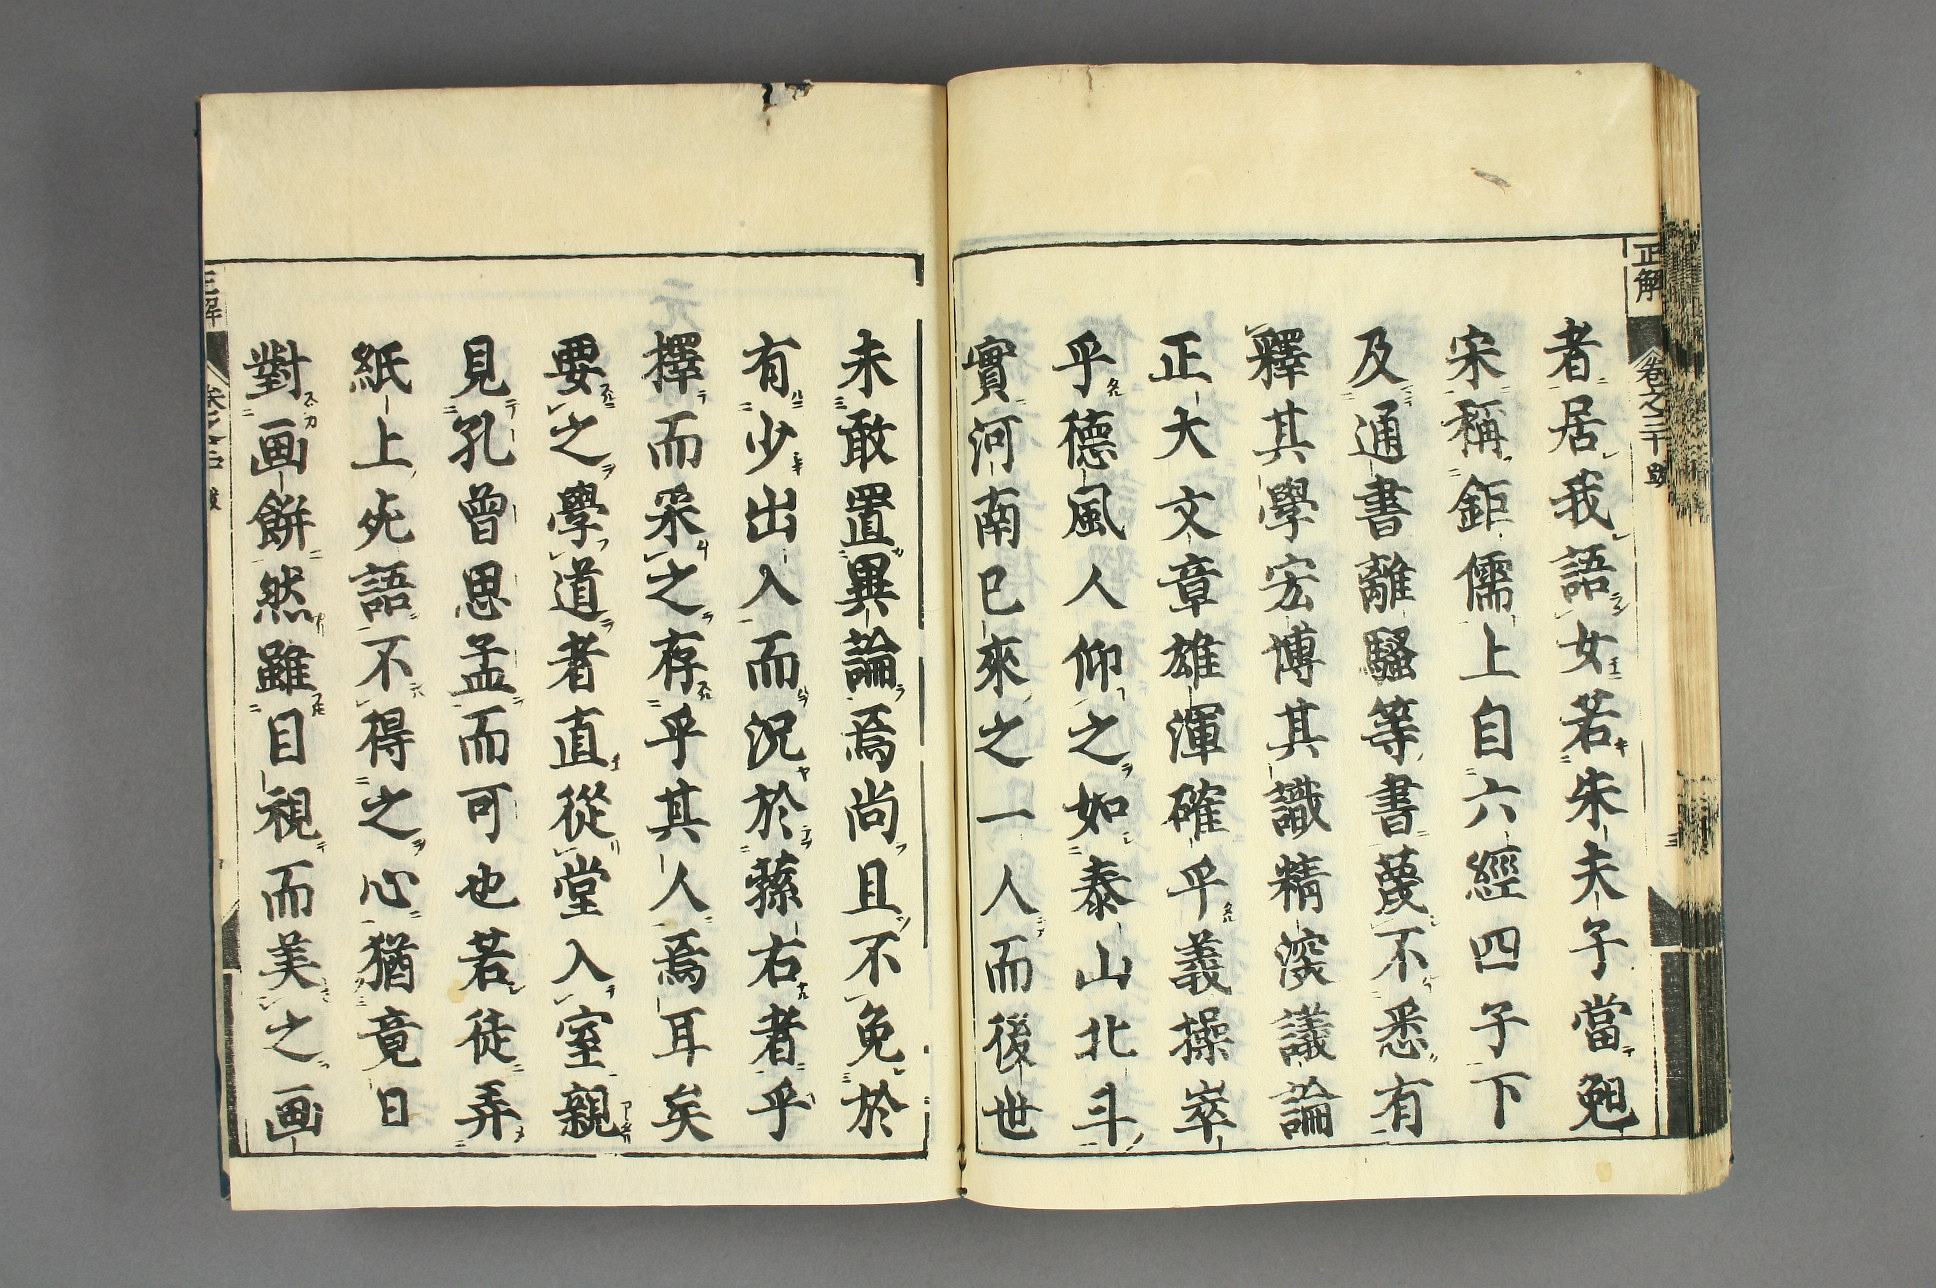 正解
卷之二十 跋
者居我語女若朱夫子當
宋稱鉅儒上自六經四子下
及通書離騷等書蔑不悉有
釋其學宏博其識精深議論
正大文章雄渾確乎義操崒
乎德風人仰之如泰山北斗
實河南已來之一人而後世
未敢置異論焉尚且不免於
有少出入而況於蓀右者乎
擇而采之存乎其人焉耳矣
要之學道者直從堂入室親
見孔曾思孟而可也若徒弄
紙上死語不得之心猶竟日
對画餅然雖目視而美之画